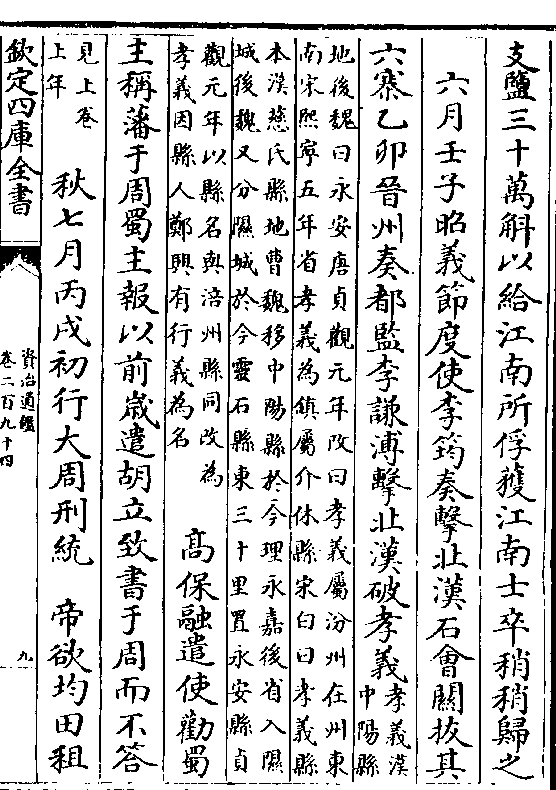 支鹽三十萬斛以給江南所俘獲江南士卒稍稍歸之
六月壬子昭義節度使李筠奏擊北漢石會關拔其
六寨乙卯晉州奏都監李謙溥擊北漢破孝義孝義漢中陽縣
地後魏曰永安唐貞觀元年改曰孝義屬汾州在州東
南宋熙寧五年省孝義為鎮屬介休縣宋白曰孝義縣
本漢慈氏縣地曹魏移中陽縣於今理永嘉後省入隰
城後魏又分隰城於今靈石縣東三十里置永安縣貞
觀元年以縣名與涪州縣同改為
孝義因縣人鄭興有行義為名
高保融遣使勸蜀
主稱藩于周蜀主報以前歲遣胡立致書于周而不答
見上卷
上年
秋七月丙戌初行大周刑統 帝欲均田租
欽定四庫全書
資治通鑑
卷二百九十四
九